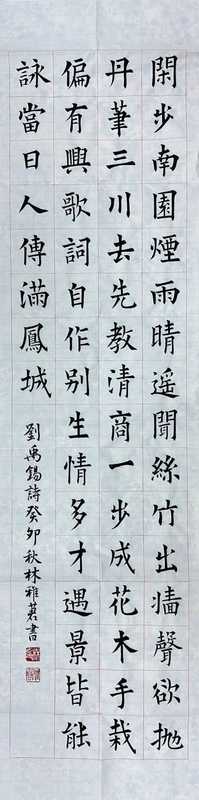 閑步南園煙雨晴遥聞絲竹出墻聲欲拋
丹筆三川去先教清商一步成花木手栽
偏有興歌詞自作别生情多才遇景皆能
詠當日人傳滿鳳城
劉禹錫詩癸卯秋林雅茗書